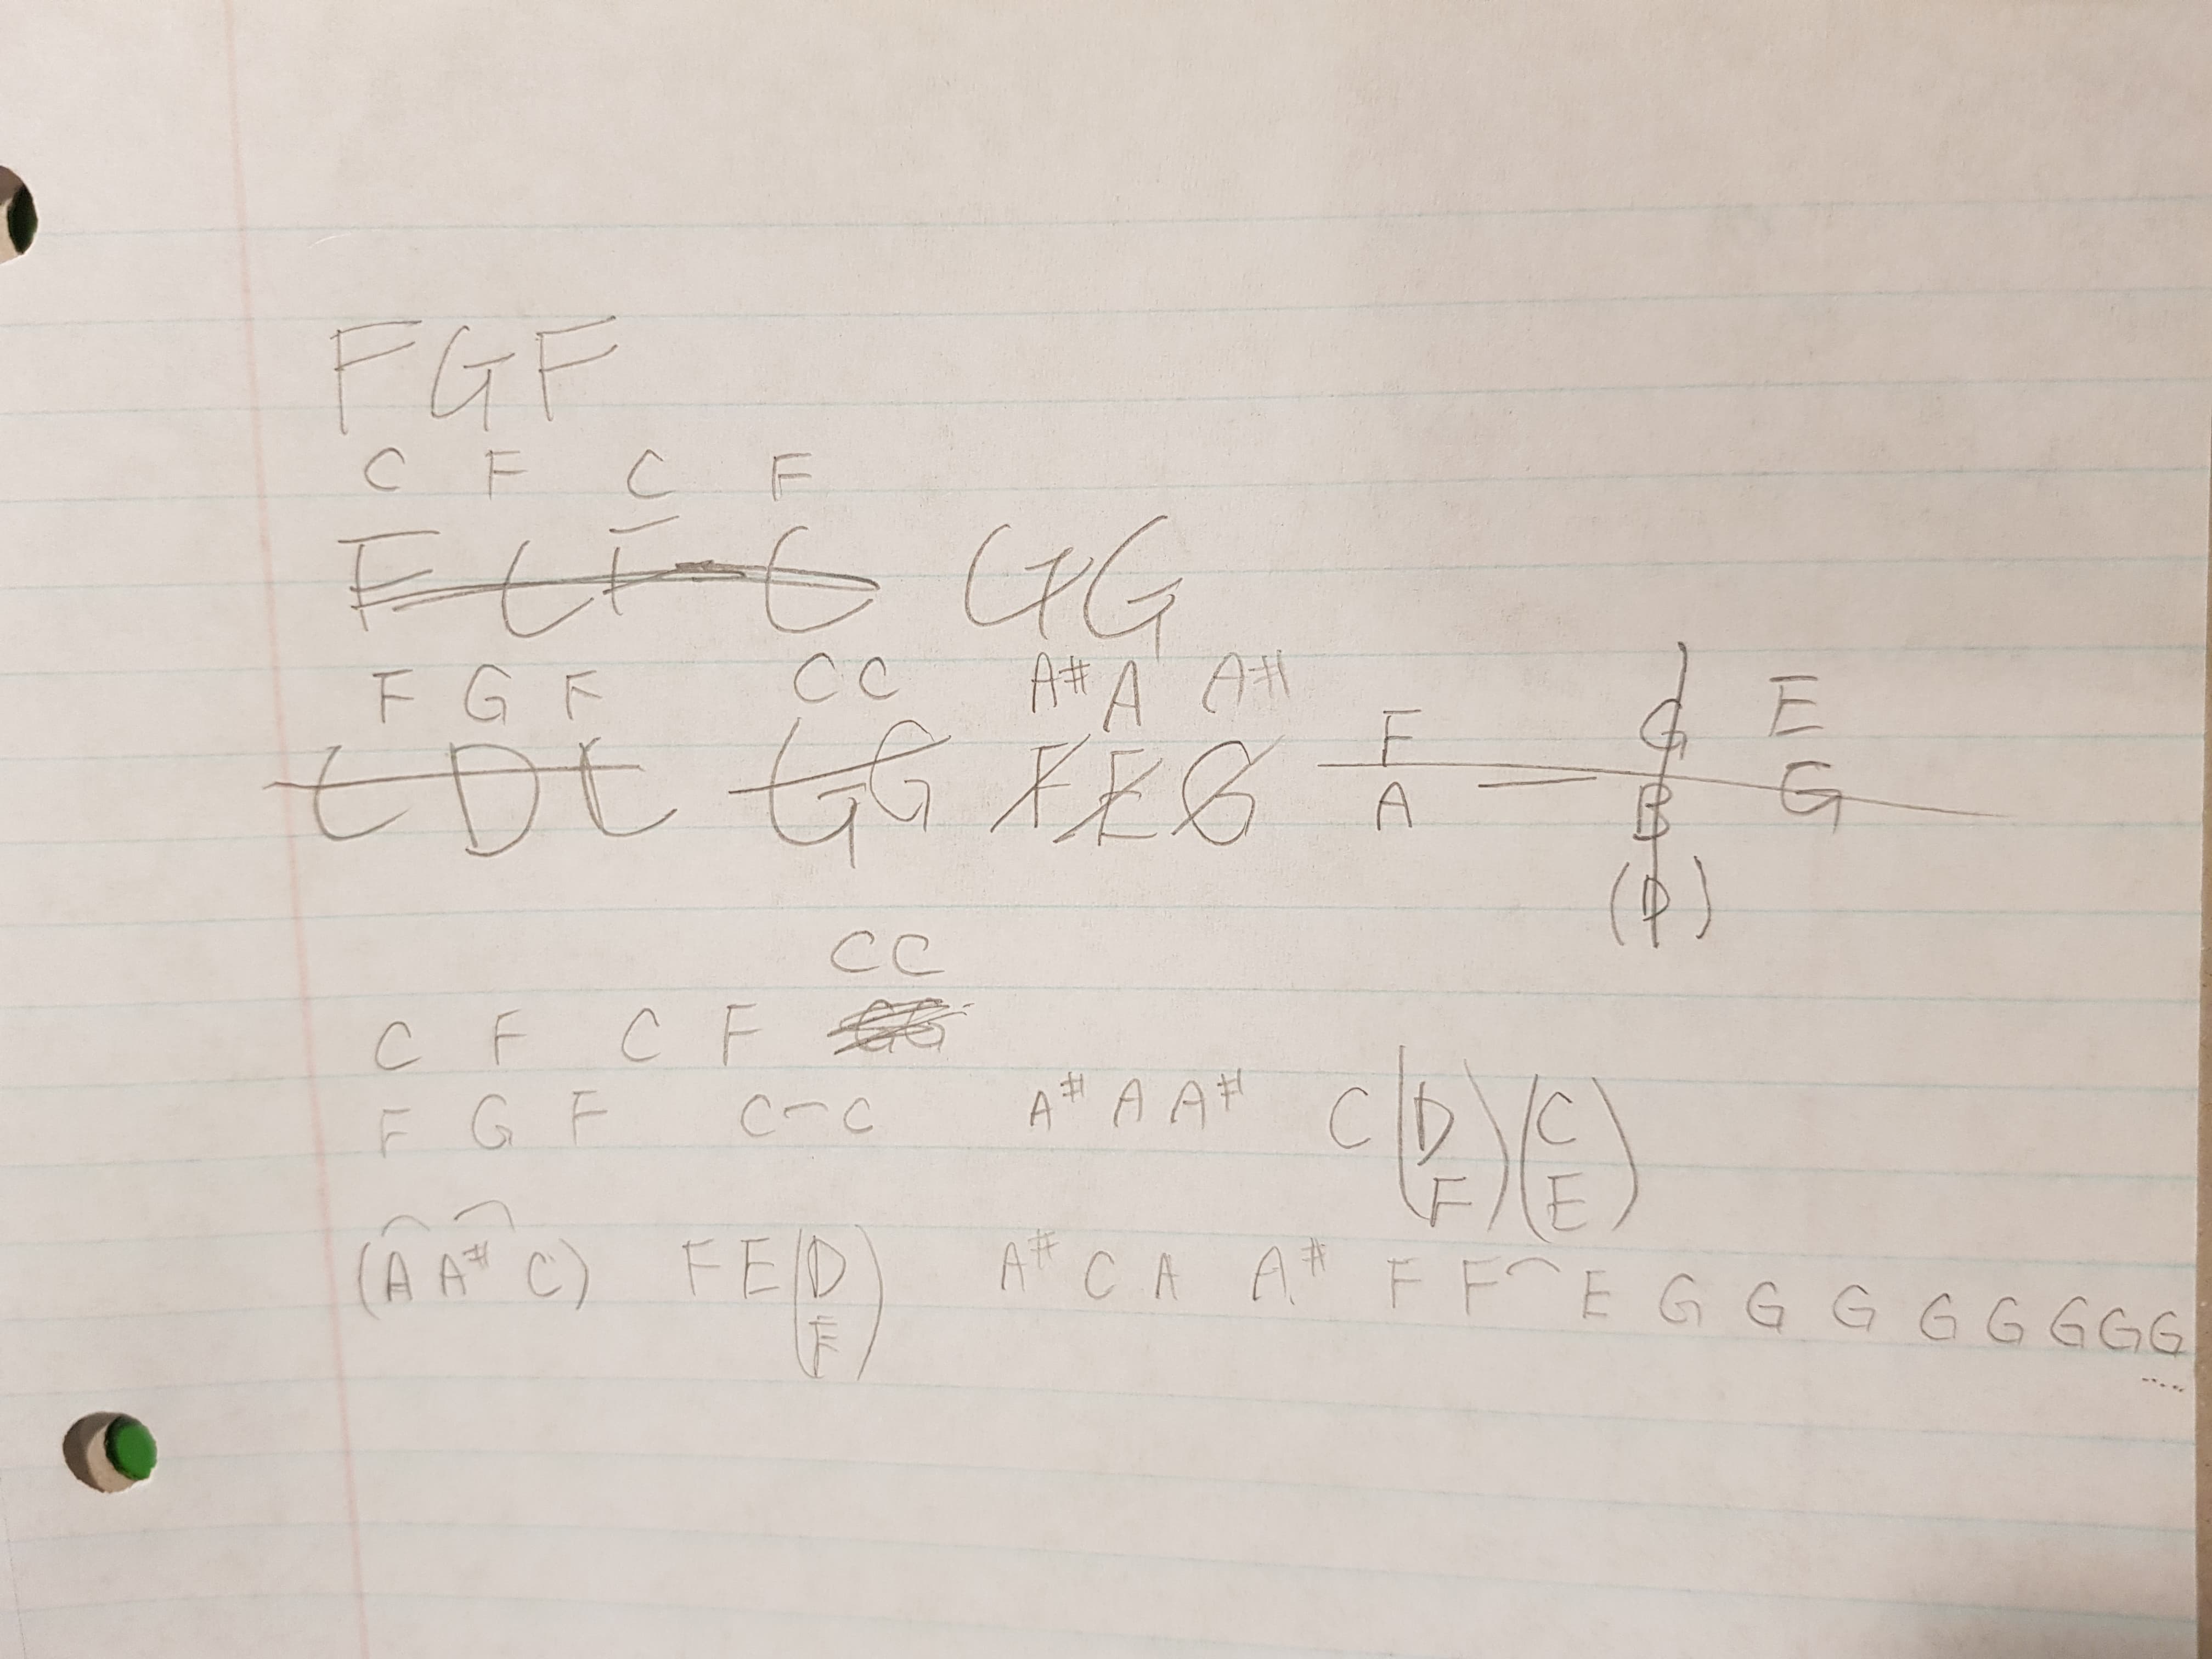 F G F
C F C F
F C F C G G
F G F C C A# A A# F G E
C D C G G F E G A B G
(D)
C C
C F C F G G
F G F C-C A# A A# C (D (C
F) E)
(A A# C) F E (D A# C A A# F F E G G G G G G G G
F) ....